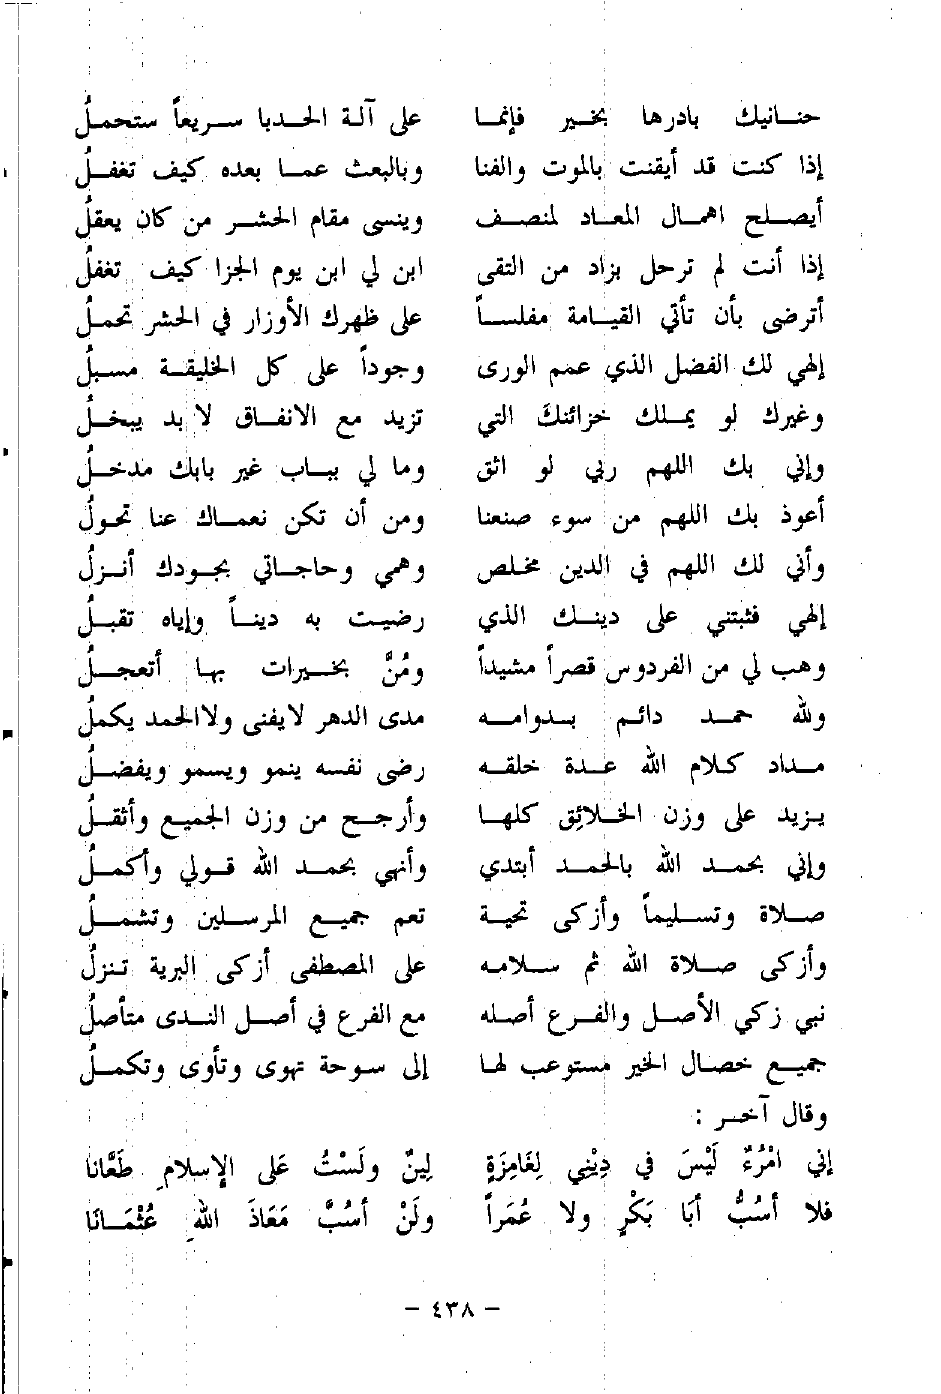 حنانيك بادرها بخير فإنما على آلة الحدبا سريعاً ستحملُ
إذا كنت قد أيقنت بالموت والفنا وبالبعث عما بعده كيف تغفلُ
أيصلح اهمال المعاد لمنصف وينسى مقام الحشر من كان يعقلُ
إذا أنت لم ترحل بزاد من التقى ابن لي ابن يوم الجزا كيف تغفلُ
أترضى بأن تأتي القيامة مفلساً على ظهرك الأوزار في الحشر تحملُ
إلهي لك الفضل الذي عمم الورى وجوداً على كل الخليقة مسبلُ
وغيرك لو يملك خزائنك التي تزيد مع الانفاق لا بد يبخلُ
وإني بك اللهم ربي لو اثق وما لي بباب غير بابك مدخلُ
أعوذ بك اللهم من سوء صنعنا ومن أن تكن نعماك عنا تحولُ
وأني لك اللهم في الدين مخلص وهمي وحاجاتي بجودك أنزلُ
إلهي فثبتني على دينك الذي رضيت به ديناً وإياه تقبلُ
وهب لي من الفردوس قصراً مشيداً ومُنَّ بخيرات بها أتعجلُ
ولله حمد دائم بدوامه مدى الدهر لايفنى ولاالحمد يكملُ
مداد كلام الله عدة خلقه رضى نفسه ينمو ويسمو ويفضلُ
يزيد على وزن الخلائق كلها وأرجح من وزن الجميع وأثقلُ
وإني بحمد الله بالحمد أبتدي وأنهي بحمد الله قولي وأكملُ
صلاة وتسليماً وأزكى تحية تعم جميع المرسلين وتشملُ
وأزكى صلاة الله ثم سلامه على المصطفى أزكى البرية تنزلُ
نبي زكي الأصل والفرع أصله مع الفرع في أصل الندى متأصلُ
جميع خصال الخير مستوعب لها إلى سوحة تهوى وتأوى وتكملُ
وقال آخر :
إني امْرُءٌ لَيْسَ في دِيْنِي لِغَامِزَةٍ لِينٌ ولَسْتُ عَلى الإسلامِ طَعَّانا
فلا أسُبُّ أبَا بَكْرٍ ولا عُمَراً ولَنْ أسُبَّ مَعَاذَ اللهِ عُثْمَانَا
- ٤٣٨ -